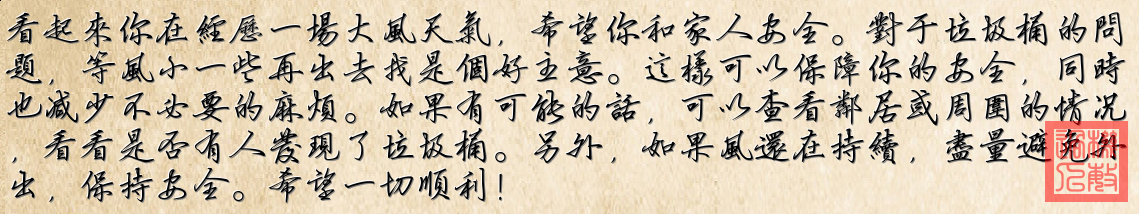 看起來你在經歷一場大風天氣，希望你和家人安全。對于垃圾桶的問
題，等風小一些再出去找是個好主意。這樣可以保障你的安全，同時
也减少不必要的麻煩。如果有可能的話，可以查看鄰居或周圍的情况
，看看是否有人發現了垃圾桶。另外，如果風還在持續，盡量避免外
出，保持安全。希望一切順利！